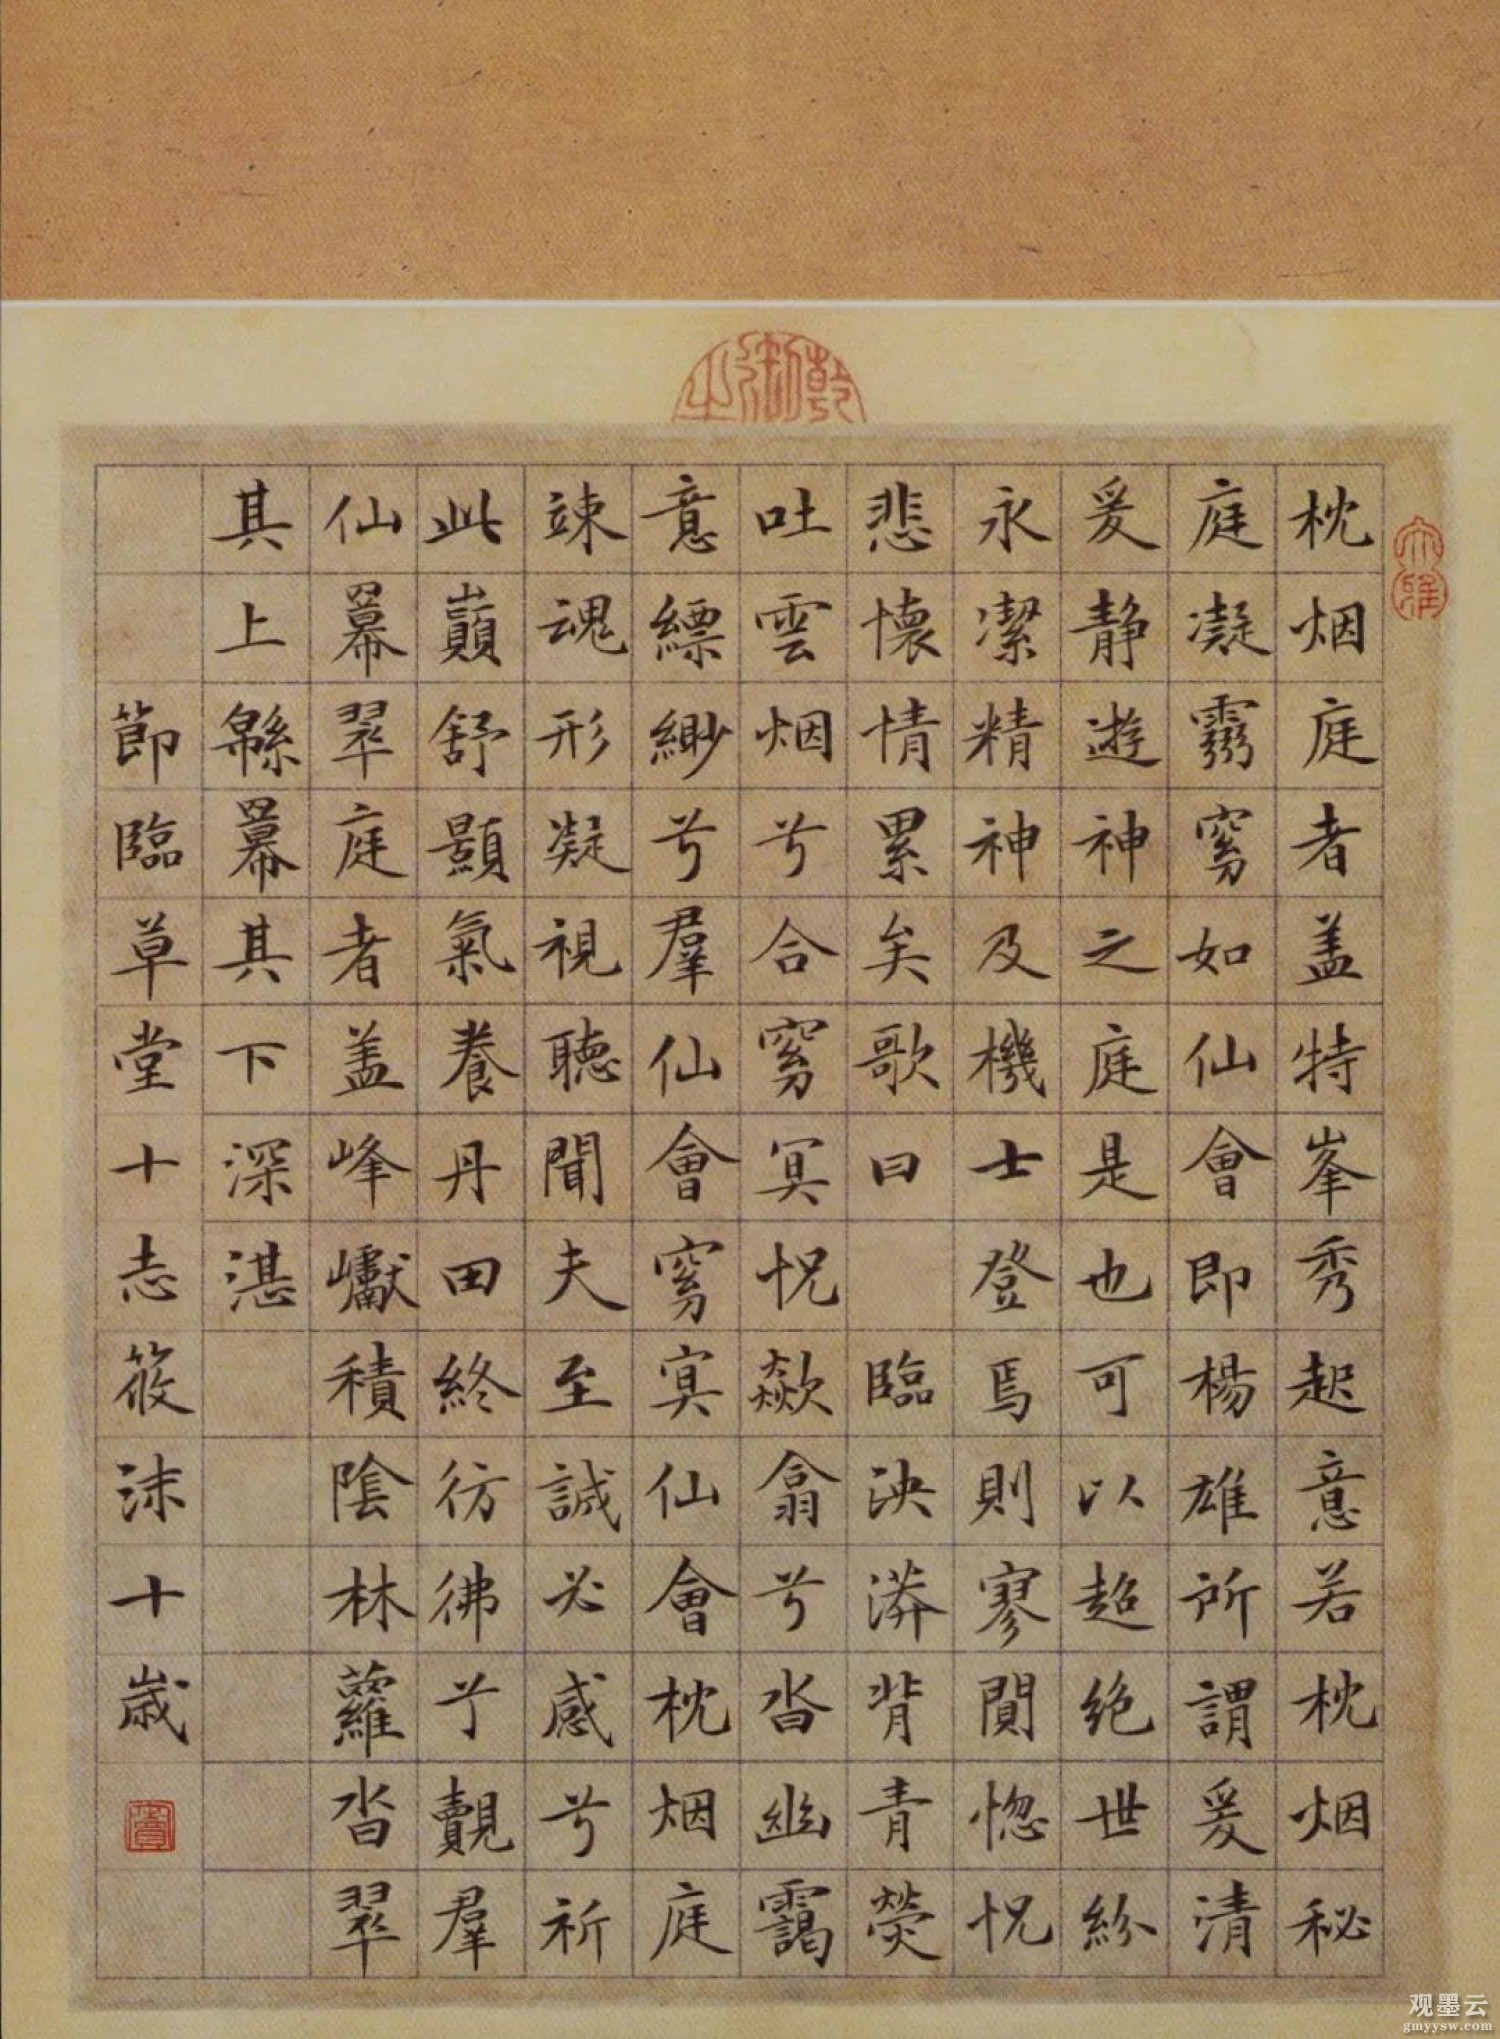 枕烟庭者盖特峯秀起意若枕烟秘
庭凝霧窈如仙會即楊雄所謂爰清
爰静遊神之庭是也可以超絶世紛
永潔精神及機士登焉則寥閴惚怳
悲懐情累矣歌曰 臨泱漭背青熒
吐雲烟兮合窈冥怳歘翕兮沓幽靄
意縹緲兮羣仙會窈冥仙會枕烟庭
竦魂形凝視聴聞夫至誠必感兮祈
此巔舒顥氣養丹田終彷彿兮覿羣
仙幕翠庭者盖峰巘積陰林蘿沓翠
其上緜幕其下深湛
節臨草堂十志筱沫十歲
观墨云
gmyysw.com